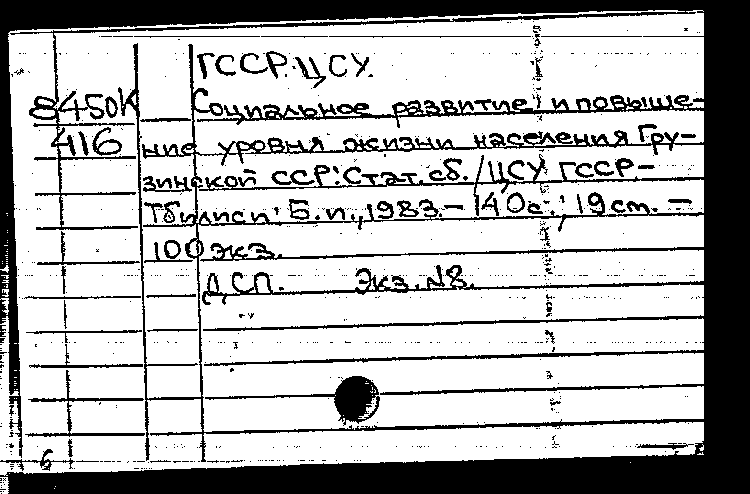 ГССР. ЦСУ.
8450К Социальное развитие и повыше-
416 ние уровня жизни населения Гру-
зинской ССР: Стат. сб. / ЦСУ ГССР. -
Тбилиси: Б. и., 1983. - 140 с.; 19 см. -
100 экз.
ДСП. Экз. №8.
6